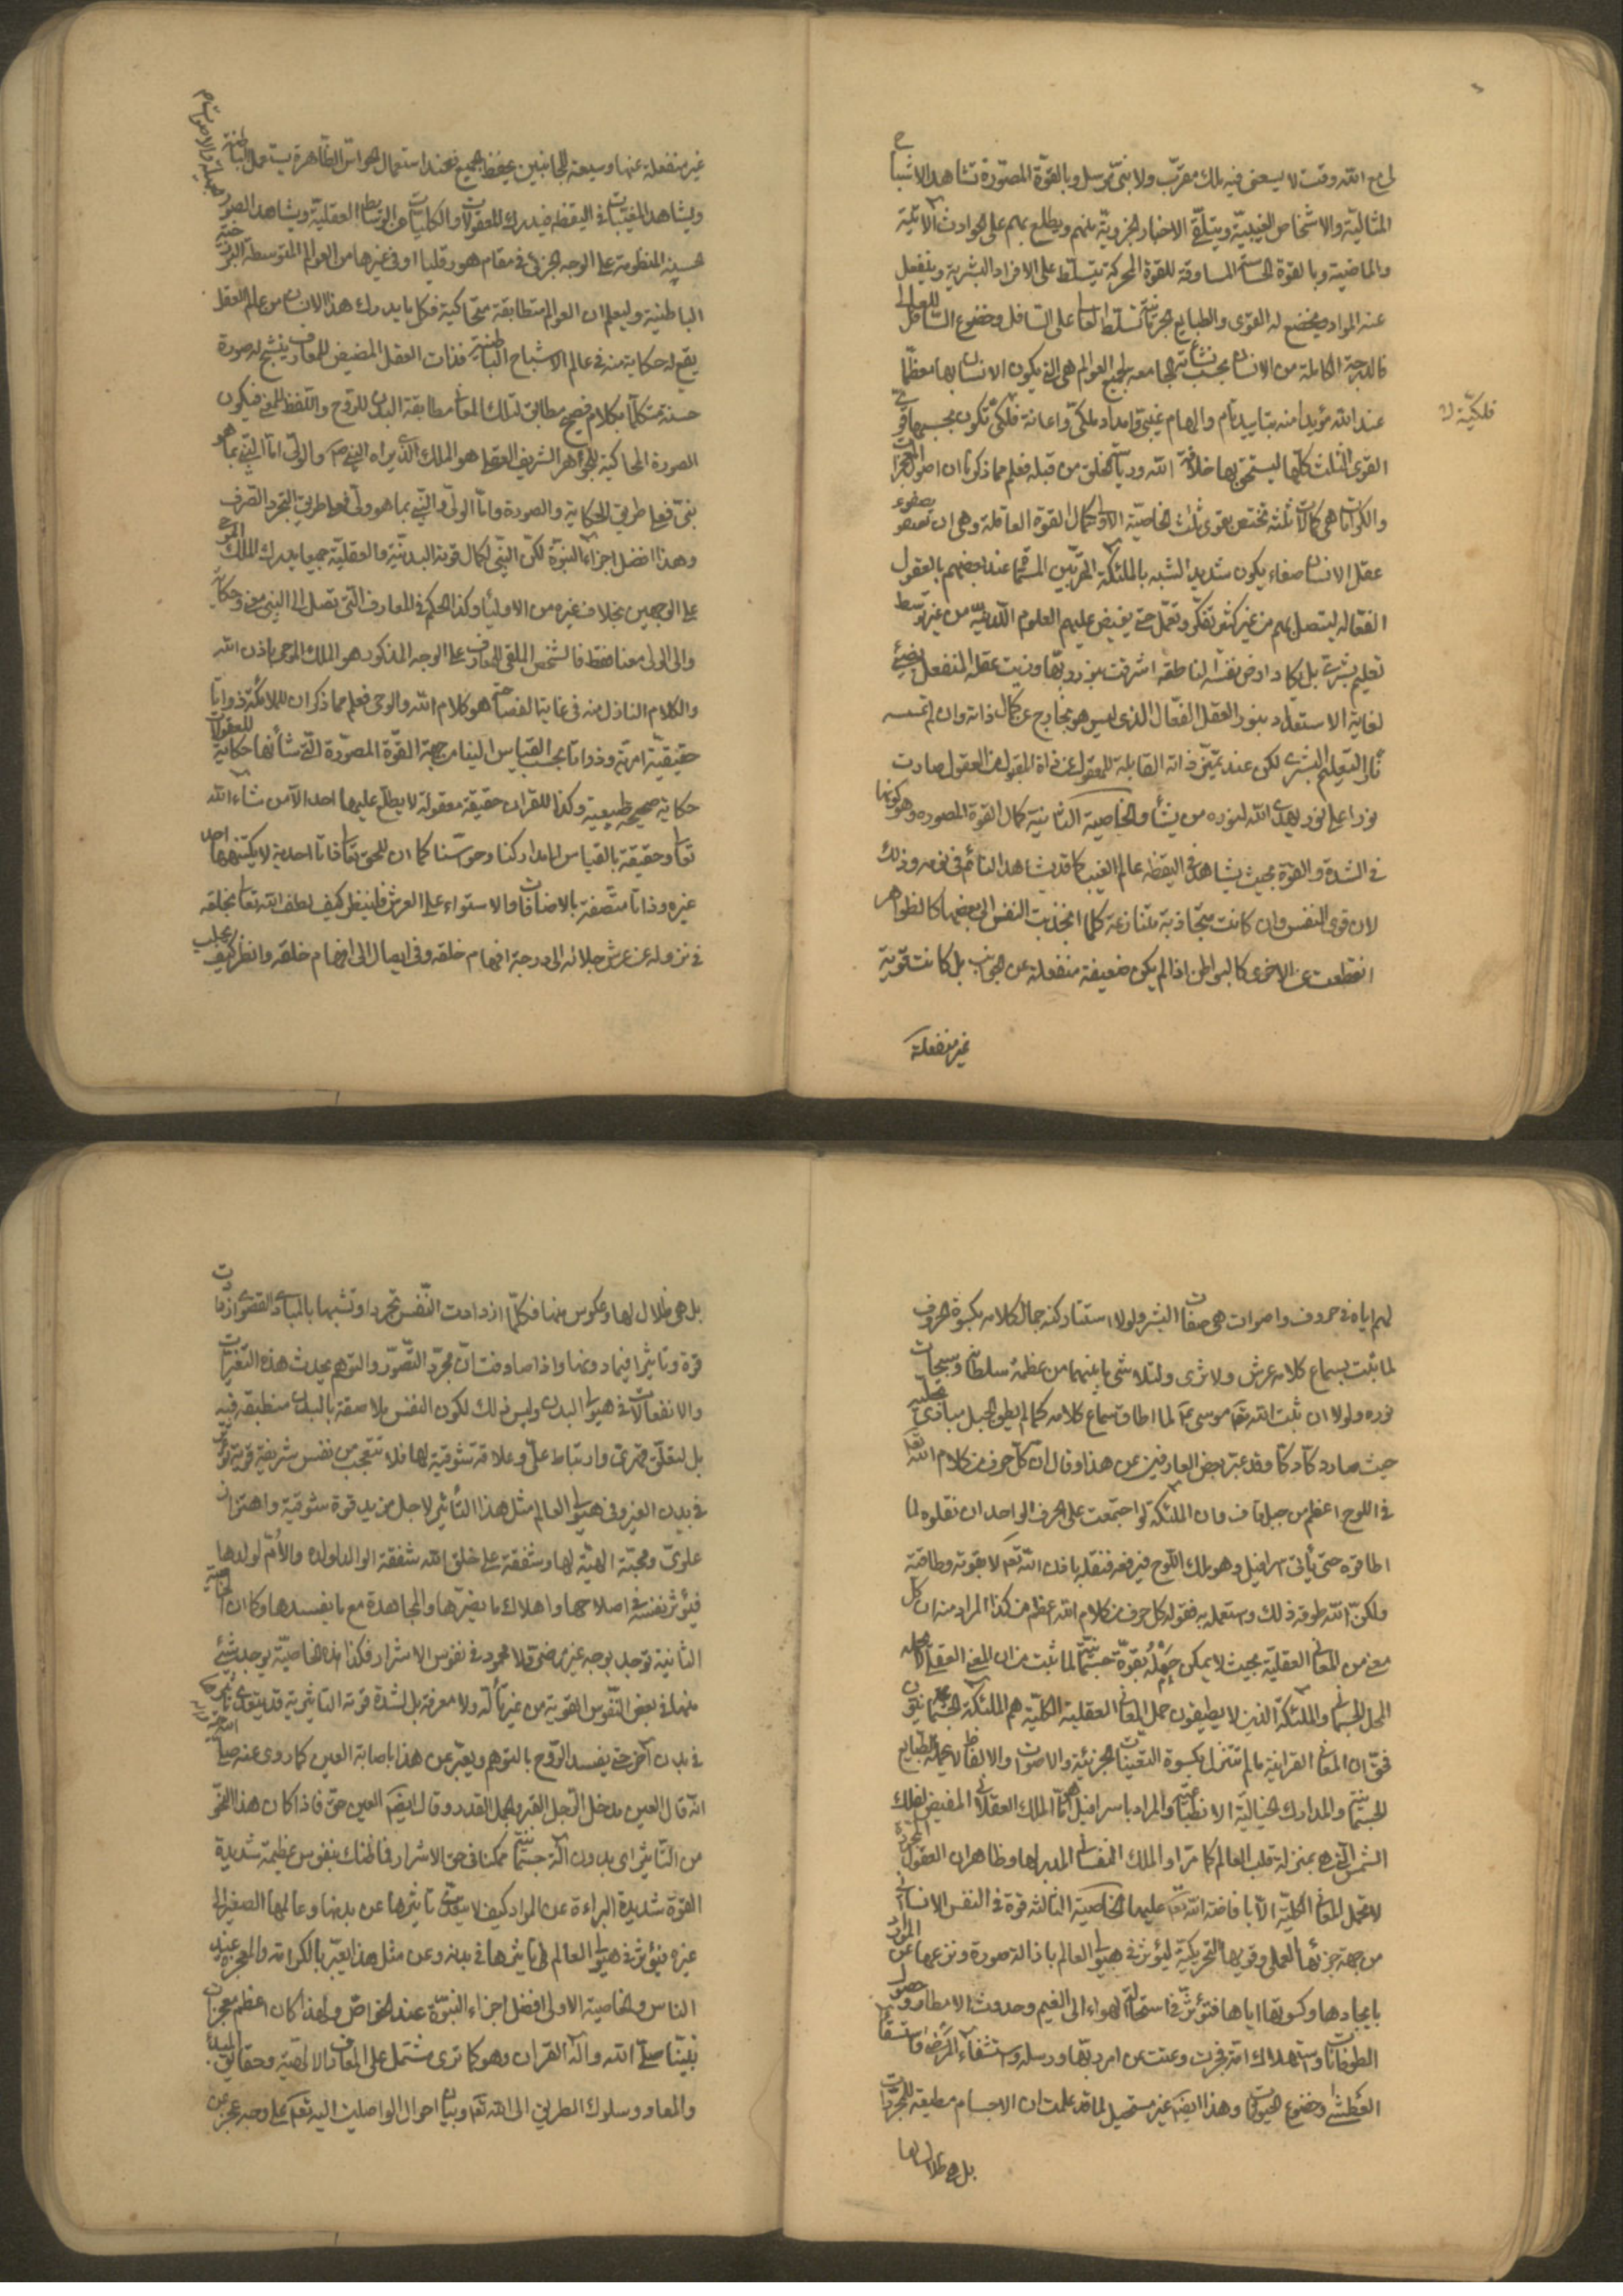 لى مع الله وقت لا يسعنى فيه ملك مقرب ولا نبى مرسل وبالقوة المصورة تشاهد الاشباح
المثالية والاشخاص الغيبية ويتلقى الاخبار الجزوية منهم ويطلع بهم على الحوادث الاتية
والماضية وبالقوة الحساسة المساوقة للقوة المحركة يتسلط على الافراد البشرية وينفعل
عنه المواد ويخضع له القوى والطبايع الجرمانية تسلط العالى على السافل وخضوع السافل للعالى
فالدرجة الكاملة من الانسان بحسب نشأته الجامعه لجميع العوالم هى التى يكون الانسان بها معظما
عند الله مؤيدا منه بتاييد تام والهام غيبى وامداد ملكى واعانة فلكى تكون بحسبها فى
فلكية ل
القوى الثلث كلها ليستحق بها خلافة الله ورياسة الخلق من قبله فعلم مما ذكرنا ان اصول المعجزات
والكرامات هى كمالات ثلثة تختص بقوى ثلث الخاصية الاولى كمال القوة العاقلة وهى ان تصفو
عقل الانسان صفاء يكون شديد الشبه بالملئكة المقربين المسماة عند بعضهم بالعقول
الفعاله ليتصل بهم من غير كثير تفكر وتعمل حتى يفيض عليهم العلوم اللدنية من غير توسط
تعليم بشرى بل يكاد ارض نفسه الناطقة اشرقت بنور ربها وزيت عقله المنفعل يضئ
لغاية الاستعداد بنور العقل الفعال الذى ليس هو بخارج عن كمال ذاته وان لم تمسسه
نار التعليم البشرى لكن عند تميز ذاته القابلة للمعقول عن ذات المقبول من العقول صارت
نورا على نور يهدى الله لنوره من يشأ والخاصية الثانية كمال القوة المصوره وهو كونها
فى الشدة والقوة بحيث يشاهد فى اليقظه عالم الغيب كما قد يشاهد النائم فى نومه وذلك
لان قوى النفس وان كانت متجاذبة متنازعة كلما انجذبت النفس الى بعضها كالظواهر
انقطعت عن الاخرى كالبواطن اذا لم يكن ضعيفة منفعلة عن الجوانب بل كانت قوية
غير منفعلة
غير منفعلة عنها وسيعة للجانبين يحفظ الجميع فعند استعمال الحواس الظاهرة يستعمل الباطنة
ويشاهد المغيبات فى اليقظه فيدرك المعقولات والكليات عن الوسائط العقلية ويشاهد الصور جميلة والاصوات م
حسنه المنظومة على الوجه الجزئى فى مقام هورقليا او فى غيرها من العوالم المتوسطة البرزخية
الباطنية وليعلم ان العوالم متطابقة متحاكية فكل ما يدرك هذا الانسان من عالم العقل
يقع له حكاية منه فى عالم الاشباح الباطنية فذات العقل المفيض للمعارف يتشبح له صورة
حسنة متكلما بكلام فصيح مطابق لتلك المعانى مطابقة البدن للروح واللفظ للمعنى فيكون
الصورة المحاكية للجواهر الشريف العقلى هو الملك الذى يراه النبى ص والولى اما النبى بما هو
نبى فعلى طريق الحكاية والصورة واما الولى والنبى بما هو ولى فعلى طريق التجرد الصرف
وهذا افضل اجزاء النبوة لكن النبى لكمال قوته البدنية والعقلية جميعا يدرك الملك الموحى
على الوجهين بخلاف غيره من الاولياء وكذا الحكم فى المعارف التى تصل الى النبى معنى وحكاية
والى الولى معنا فقط فالشخص الملقى للمعارف على الوجه المذكور هو الملك الموحى باذن الله
والكلام النازل منه فى غاية الفصاحة هو كلام الله والوحى فعلم مما ذكر ان للملائكة ذواتا
حقيقية امرية وذواتا بحسب القياس الينا من جهة القوة المصورة التى شأنها حكاية المعقولات
حكاية صحيحة طبيعية وكذا للقران حقيقة معقولة لا يطلع عليها احد الا من شاء الله
تعالى وحقيقة بالقياس الى مداركنا وحواسنا كما ان للحق تعالى ذاتا احدية لا يكتنهها احد
غيره وذاتا متصفة بالاضافات والاستواء على العرش فلينظر كيف لطف الله تعالى بخلقه
فى نزوله عن عرش جلاله الى درجة افهام خلقه وفى ايصال الى افهام خلقه وانظر كيف تجلى
لهم اياه فى حروف واصوات هى صفات البشر ولولا استتار كنه جمال كلامه بكسوة الحروف
لما ثبت بسماع كلامه عرش ولا ثرى ولتلاشى ما بينهما من عظمة سلطانه وسبحات
نوره ولولا ان ثبت الله تعالى موسى ع لما اطاق سماع كلامه كما لم يطق الجبل مبادى تجليه
حيث صار دكا دكا وقد عبر بعض العارفين عن هذا وقال ان كل حرف من كلام الله تعالى
فى اللوح اعظم من جبل قاف وان الملئكة لو اجتمعت على الحرف الواحد ان نقلوه لما
اطاقوه حتى يأتى اسرافيل وهو ملك اللوح فيرفعه فنقله باذن الله تعالى لا بقوته وطاقته
ولكن الله طوقه ذلك واستعمله به فقوله كل حرف من كلام الله اعظم من كذا المراد منه ان كل
معنى من المعانى العقلية بحيث لا يمكن حمله بقوة جسمانية لما ثبت من ان المعنى العقلى لا يحله
المحل الجسمانى والملئكة الذين لا يطيقون حمل المعانى العقلية الكلية هم الملئكة الجسمانيون
فحق ان المعانى القرانية ما لم تتنزل بكسوة التعينات الجزئية والاصوات والالفاظ لا تحملها الطبايع
الجسمانية والمدارك الخيالية الانطباعية والمراد باسرافيل هو اما الملك العقلانى المفيض لفلك
الشمس التى هى بمنزلة قلب العالم كما مر او الملك النفسانى المدبر لها وظاهر ان العقول المجردة
لا تحمل المعانى الكلية الا بافاضة الله تعالى عليها الخاصية الثالثة قوة فى النفس الانسانى
من جهة جزئها العملى وقويها التحريكية ليؤثر فى هيولى العالم بازالة صورة ونزعها عن المواد
بايجادها وكسوتها اياها فتؤثر فى استحالة الهواء الى الغيم وحدوث الامطار وحصول
الطوفانات واستهلاك امة فجرت وعتت عن امر ربها ورسله واستشفاء المرضى واستسقاء
العطشى وخضوع الحيوانات وهذا ايضا غير مستحيل لما قد علمت ان الاجسام مطيعة للمجردات
بل هى ظلال لها
بل هى ظلال لها وعكوس منها فكلما ازدادت النفس تجردا وتشبها بالمبادى القصوى ازدادت
قوة وتاثيرا فيما دونها واذا صادفت ان مجرد التصور والتوهم يحدث هذه التغيرات
والانفعالات فى هيولى البدن وليس ذلك لكون النفس ملاصقة بالبدن منطبقة فيه
بل لتعلق قهرى وارتباط على وعلاقة تشوقية لها فلا تتعجب من نفس شريفة قوية تؤثر
فى بدن الغير وفى هيولى العالم مثل هذا التأثير لاجل مزيد قوة شوقية واهتزاز
علوى ومحبة الهية لها وشفقة على خلق الله شفقة الوالد لولده والام لولدها
فيؤثر نفسه فى اصلاحها واهلاك ما يضرها والمجاهدة مع ما يفسدها وكما ان الخاصية
الثانية توجد بوجه غير مرضى ولا محمود فى نفوس الاشرار فكذا هذه الخاصية يوجد شئ
منها فى بعض النفوس القوية من غير تأله ولا معرفة بل لشدة قوته التاثيرية قد يتعدى تأثيرها
فى بدن آخر حتى يفسد الروح بالتوهم ويعبر عن هذا باصابة العين كما روى عنه صلى الله عليه وآله
انه قال العين يدخل الرجل القبر والجمل القدر وقال ايضا العين حق فاذا كان هذا النحو
من التأثير اى بدون آلة جسمانية ممكنا فى حق الاشرار فما ظنك بنفوس عظيمة شديدة
القوة شديدة البراءة عن المواد كيف لا يتعدى تأثيرها عن بدنها وعالمها الصغير الى
غيره فيؤثر فى هيولى العالم تاثيرها فى بدنه وعن مثل هذا يعبر بالكرامة والمعجزة عند
الناس والخاصية الاولى افضل اجزاء النبوة عند الخواص ولهذا كان اعظم معجزات
نبينا صلى الله وآله القران وهو كما ترى مشتمل على المعارف الالهية وحقايق المبدء
والمعاد وسلوك الطريق الى الله تعالى وبيان احوال الواصلين اليه تعالى على وجه عجز عن